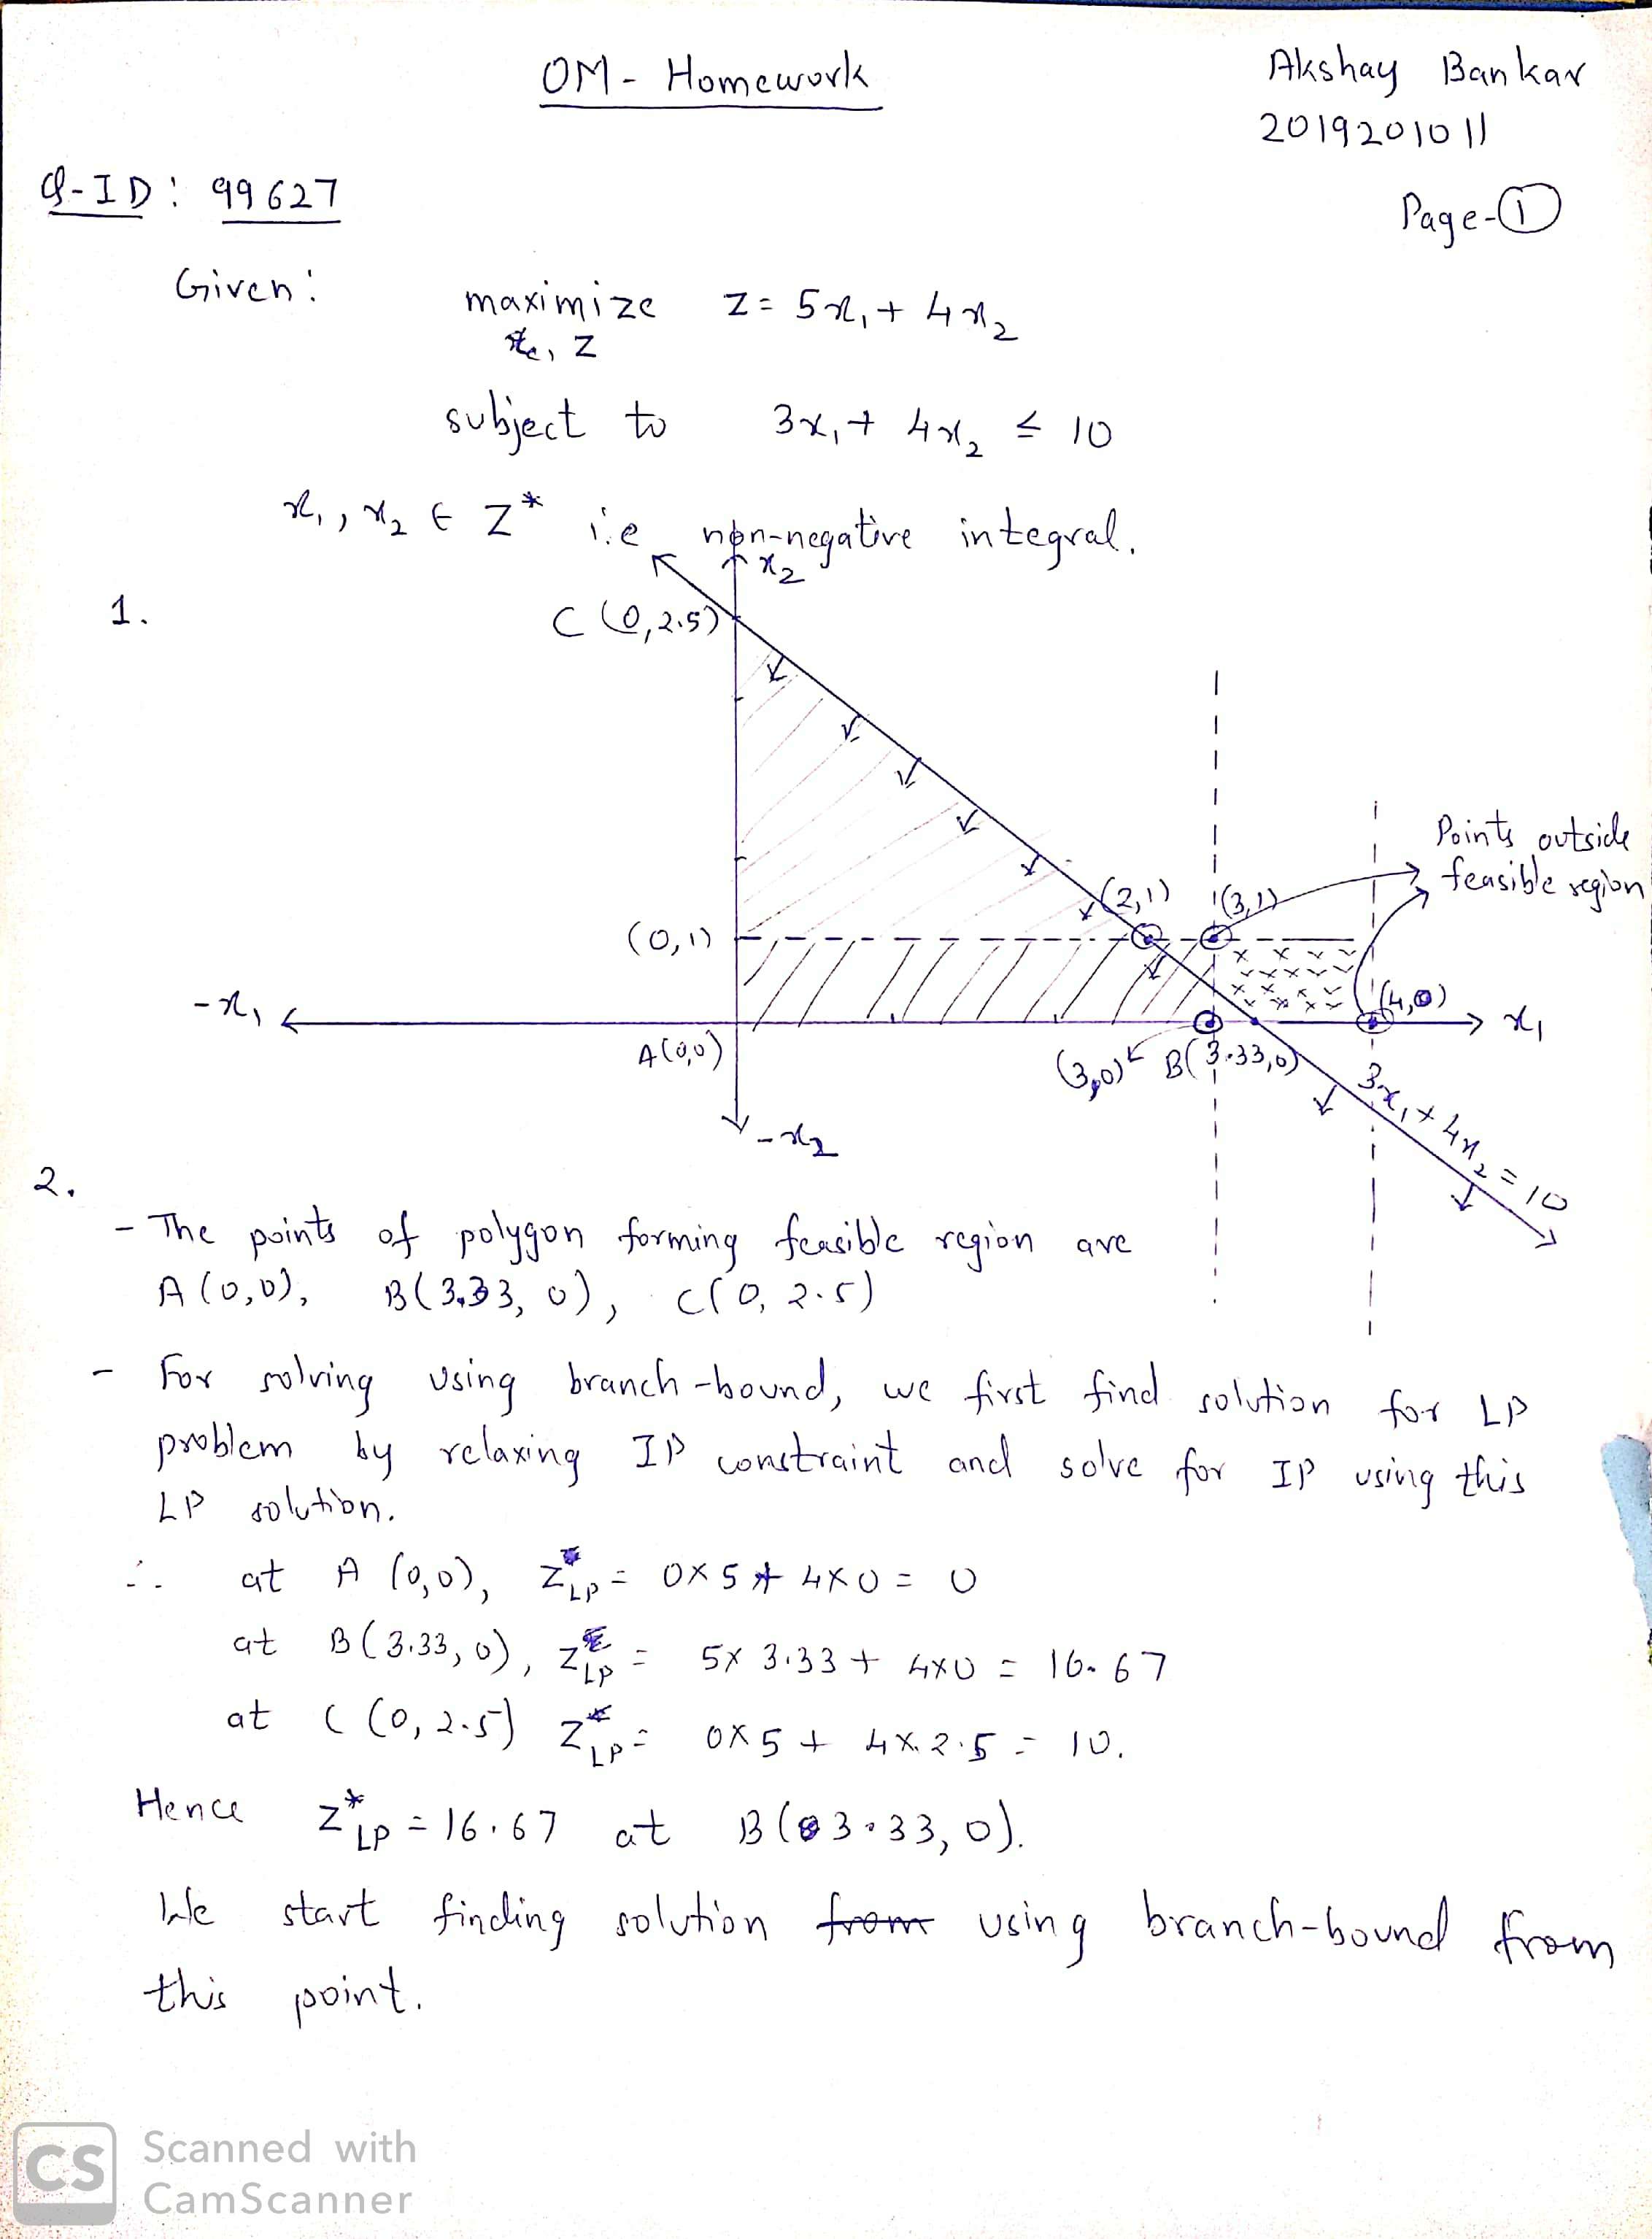 OM - Homework
Akshay Bankar
2019201011
Q-ID: 99627
Page-①
Given:
maximize z = 5x₁ + 4x₂
z
subject to 3x₁ + 4x₂ ≤ 10
x₁, x₂ ∈ Z* i.e non-negative integral.
1.
x₂
C (0, 2.5)
Points outside
feasible region
(2,1)
(3,1)
(0,1)
(4,0)
-x₁
x₁
A(0,0)
(3,0)
B(3.33,0)
3x₁ + 4x₂ = 10
-x₂
2.
- The points of polygon forming feasible region are
A(0,0), B(3.33, 0), C(0, 2.5)
- For solving using branch-bound, we first find solution for LP
problem by relaxing IP constraint and solve for IP using this
LP solution.
∴ at A (0,0), Z*LP = 0×5 + 4×0 = 0
at B(3.33, 0), Z*LP = 5×3.33 + 4×0 = 16.67
at C (0, 2.5) Z*LP = 0×5 + 4×2.5 = 10.
Hence Z*LP = 16.67 at B(3.33, 0).
We start finding solution from using branch-bound from
this point.
CS
Scanned with
CamScanner